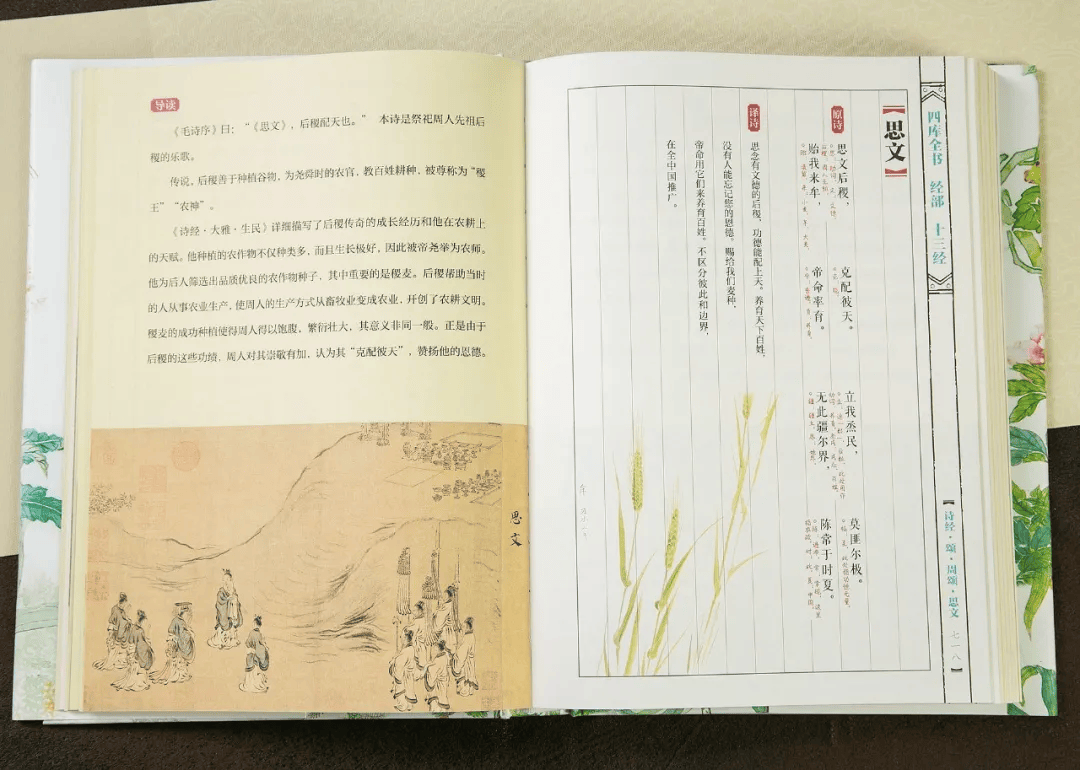 四库全书 经部 十三经
诗经·颂·周颂·思文
七一八
思文
原诗
思文后稷，克配彼天。立我烝民，莫匪尔极。
贻我来牟，帝命率育。无此疆尔界，陈常于时夏。
译诗
思念有文德的后稷，功德能配上天。养育天下百姓，
没有人能忘记您的恩德。赐给我们麦种，
帝命用它们来养育百姓。不区分彼此和边界，
在全中国推广。
牟
导读
《毛诗序》曰：“《思文》，后稷配天也。” 本诗是祭祀周人先祖后
稷的乐歌。
传说，后稷善于种植谷物，为尧舜时的农官，教百姓耕种，被尊称为“稷
王”“农神”。
《诗经·大雅·生民》详细描写了后稷传奇的成长经历和他在农耕上
的天赋。他种植的农作物不仅种类多，而且生长极好，因此被帝尧举为农师。
他为后人筛选出品质优良的农作物种子，其中重要的是稷麦。后稷帮助当时
的人从事农业生产，使周人的生产方式从畜牧业变成农业，开创了农耕文明。
稷麦的成功种植使得周人得以饱腹，繁衍壮大，其意义非同一般。正是由于
后稷的这些功绩，周人对其崇敬有加，认为其“克配彼天”，赞扬他的恩德。
思文